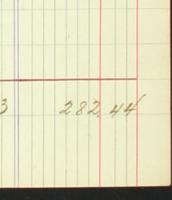 3 282.44